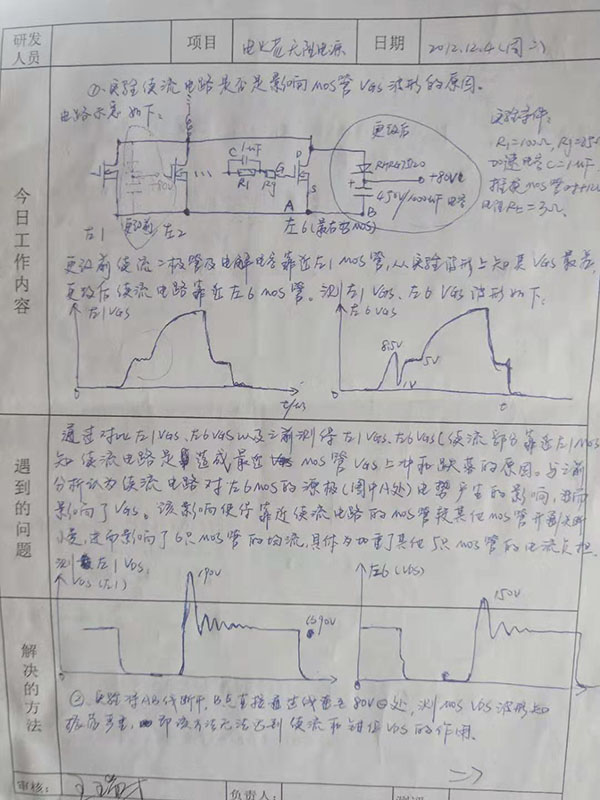 研发人员 项目 电火花无阻电源 日期 2012.12.4(周二)
今日工作内容
①、实验续流电路是否是影响MOS管VGS波形的原因。
电路示意如下:
实验条件:
R1=100Ω,
加速电容C=1uF,
更改后
C 1uF
R1 Rg
D
S
+80V
450V/1000uF电容
A
B
左1 更改前 左2 左6(最右边MOS)
更改前续流二极管及电解电容靠近左1MOS管,从实验波形上知其VGS最差,
更改后续流电路靠近左6MOS管。测左1VGS、左6VGS波形如下:
左1VGS
t/us
左6VGS
8.5V
5V
1V
t
遇到的问题
通过对比左1VGS、左6VGS以及之前测得左1VGS、左6VGS(续流部分靠近左1MOS
知续流电路是造成最近MOS管VGS上冲和跌落的原因。与之前
分析认为续流电路对左6MOS的源极(图中A处)电势产生的影响,进而
影响了VGS。该影响使得靠近续流电路的MOS管较其他MOS管开
进而影响了6只MOS管的均流,具体为加重了其他5只MOS管的电流负担。
测左1VDS,
VDS(左1)
190V
90V
左6(VDS)
150V
解决的方法
②、实验将AB线断开,B点直接通过线
80V
处,测MOS VDS波形知
振荡严重,即该方法无法达到续流和钳位VDS的作用。
审核:
负责人: